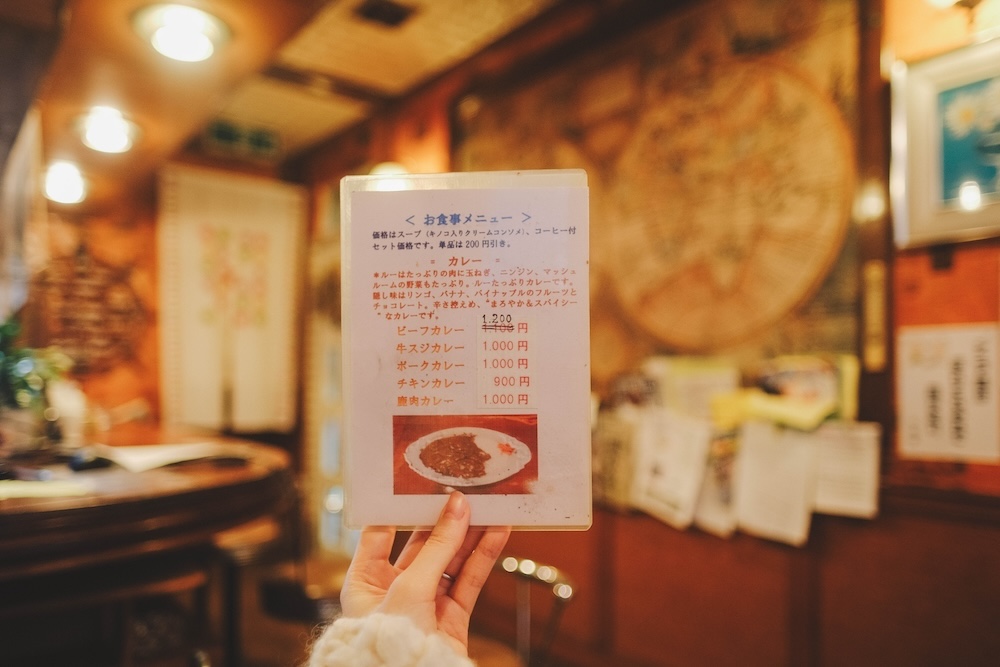 < お食事メニュー >
価格はスープ（キノコ入りクリームコンソメ）、コーヒー付
セット価格です。単品は200円引き。
= カレー =
＊ルーはたっぷりの肉に玉ねぎ、ニンジン、マッシュ
ルームの野菜もたっぷり。ルーたっぷりカレーです。
隠し味はリンゴ、バナナ、パイナップルのフルーツと
チョコレート。辛さ控えめ、"まろやか＆スパイシー
"なカレーです。
1,200
ビーフカレー 1,100円
牛スジカレー 1,000円
ポークカレー 1,000円
チキンカレー 900円
鹿肉カレー 1,000円